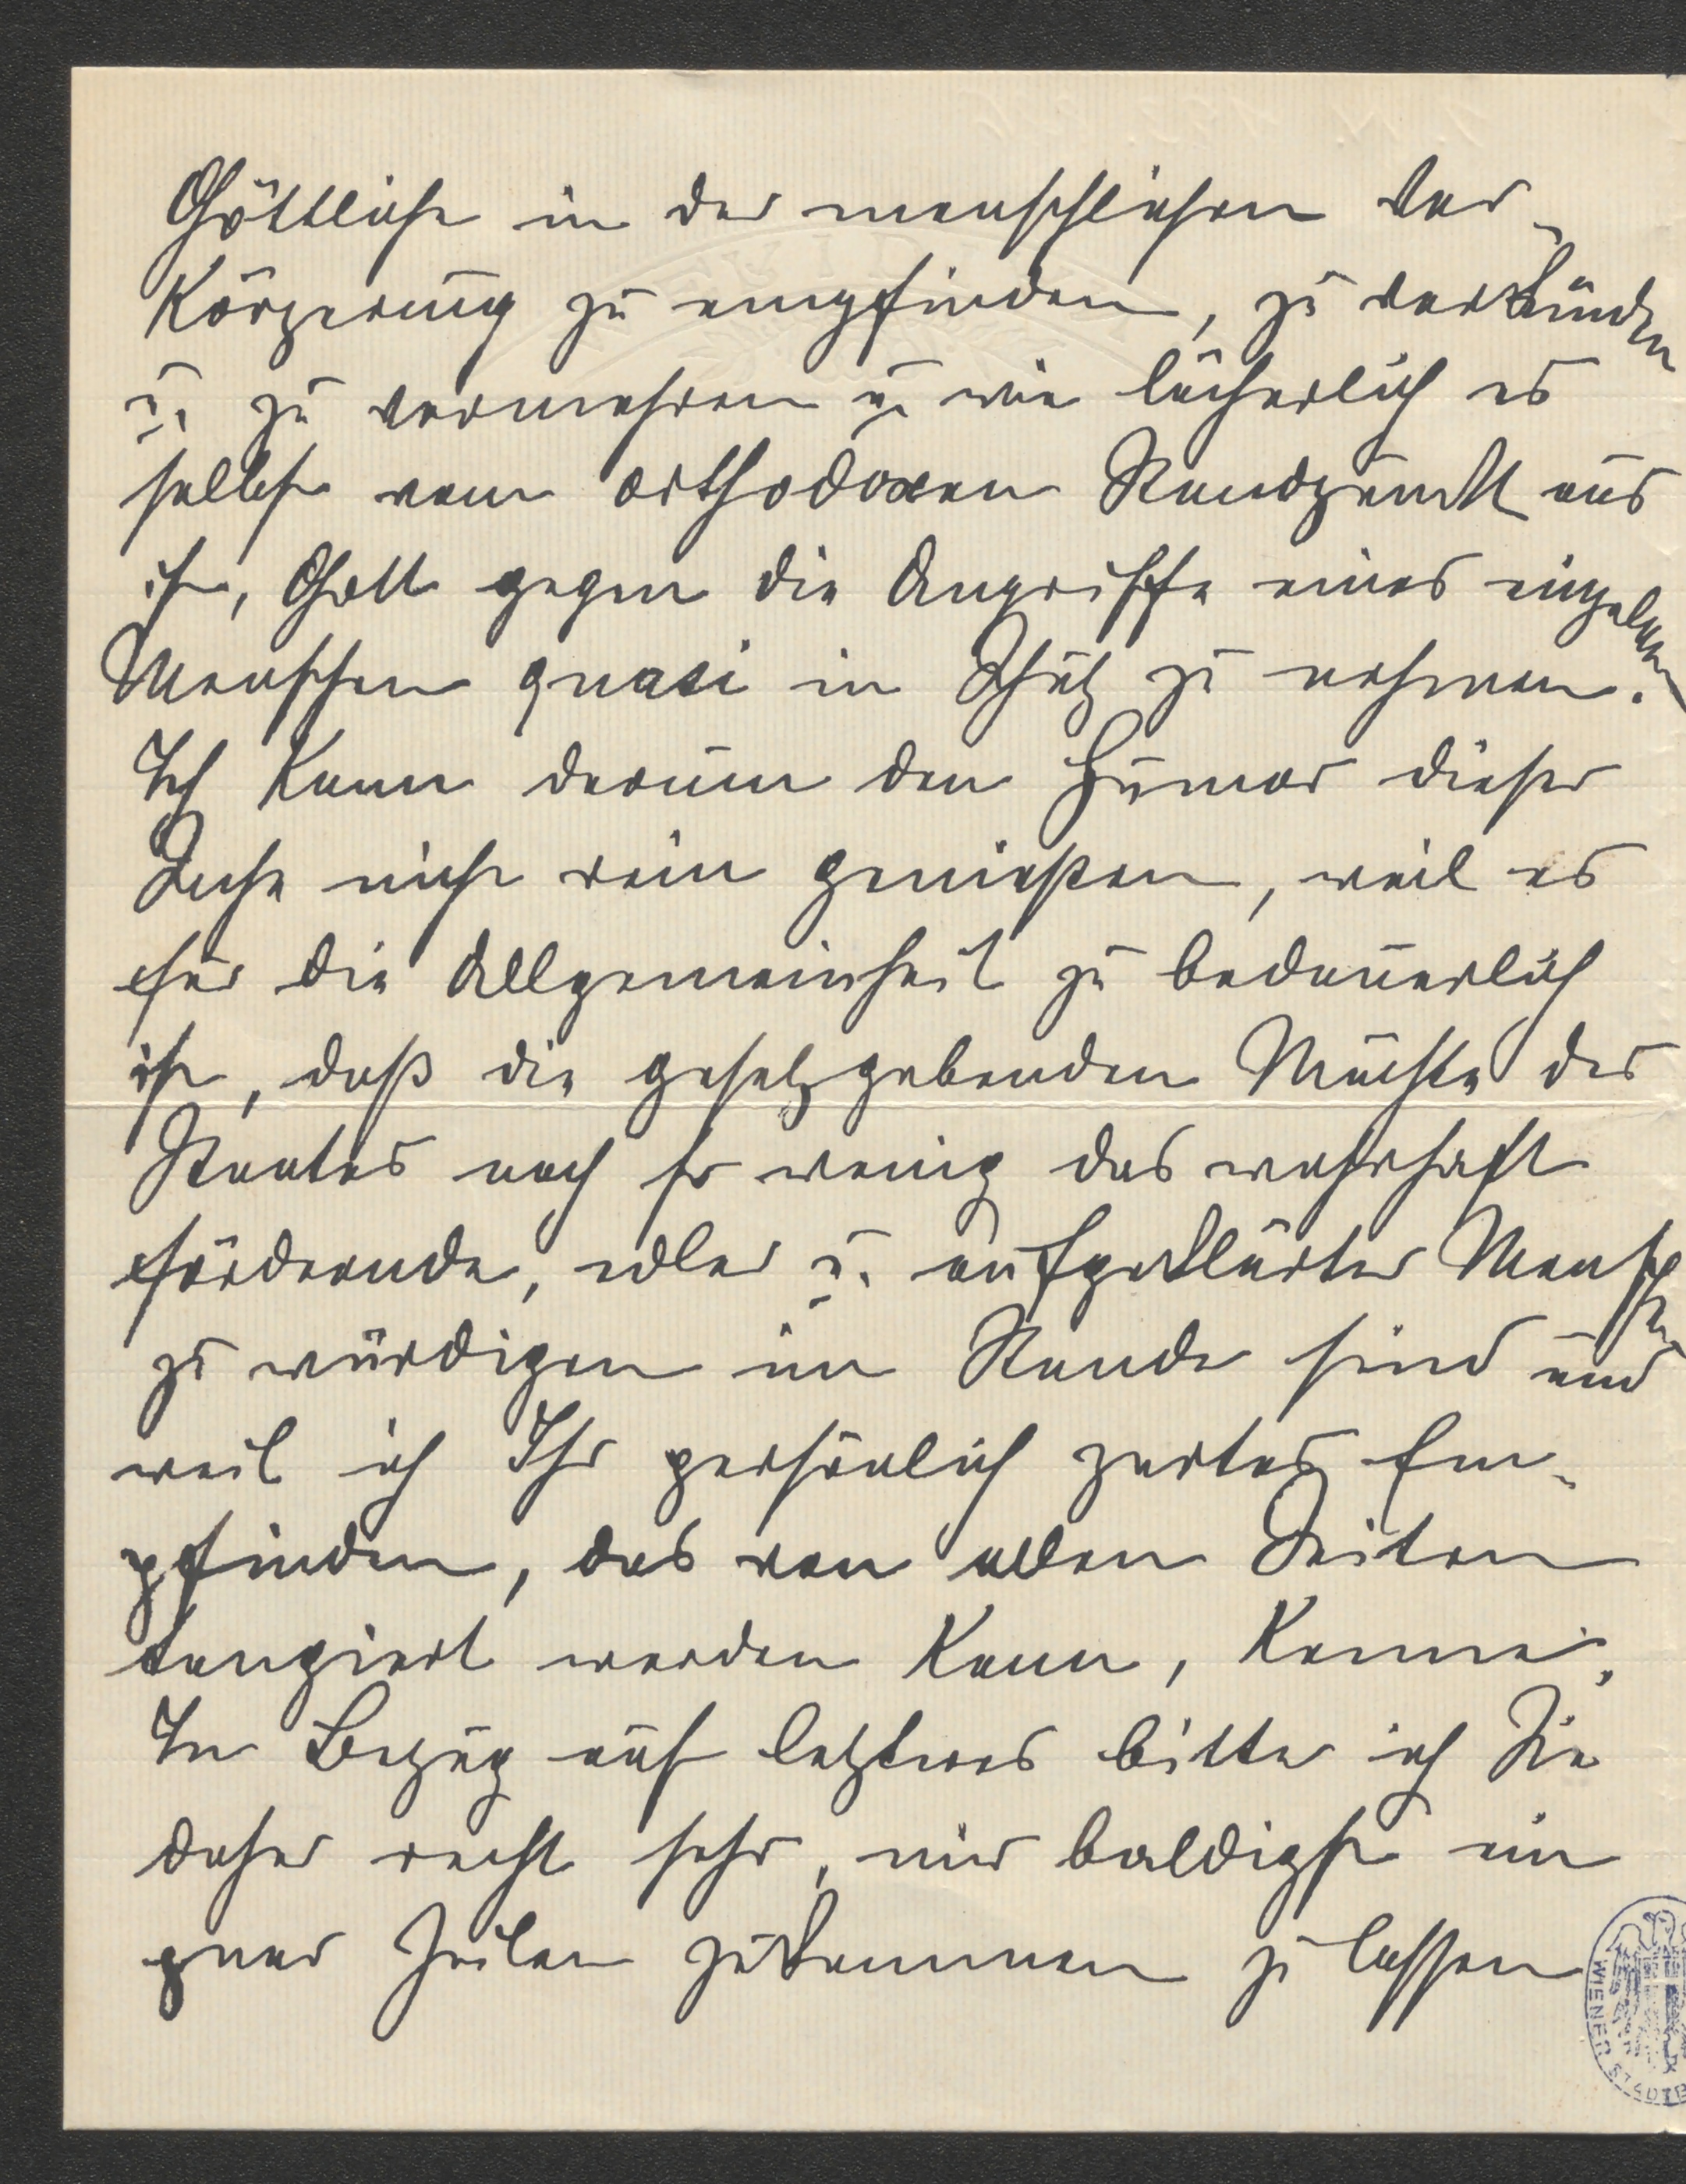 Göttliche in der menschlichen Ver-
körperung zu empfinden, zu verkünden
u. zu vermehren u. wie lächerlich es
selbst vom orthodoxen Standpunkt aus
ist, Gott gegen die Angriffe eines einzelnen
Menschen quasi in Schutz zu nehmen.
Ich kann darum den Humor dieser
Sache nicht rein genießen, weil es
für die Allgemeinheit zu bedauerlich
ist, daß die gesetzgebenden Mächte des
Staates noch so wenig das wahrhaft
fördernde, edler u. aufgeklärter Menschen
zu würdigen im Stande sind und
weil ich Ihr persönlich zartes Em-
pfinden, das von allen Seiten
tangiert werden kann, kenne.
In Bezug auf letzteres bitte ich Sie
daher recht sehr, mir baldigst ein
paar Zeilen zukommen zu lassen
WIENER STADTB